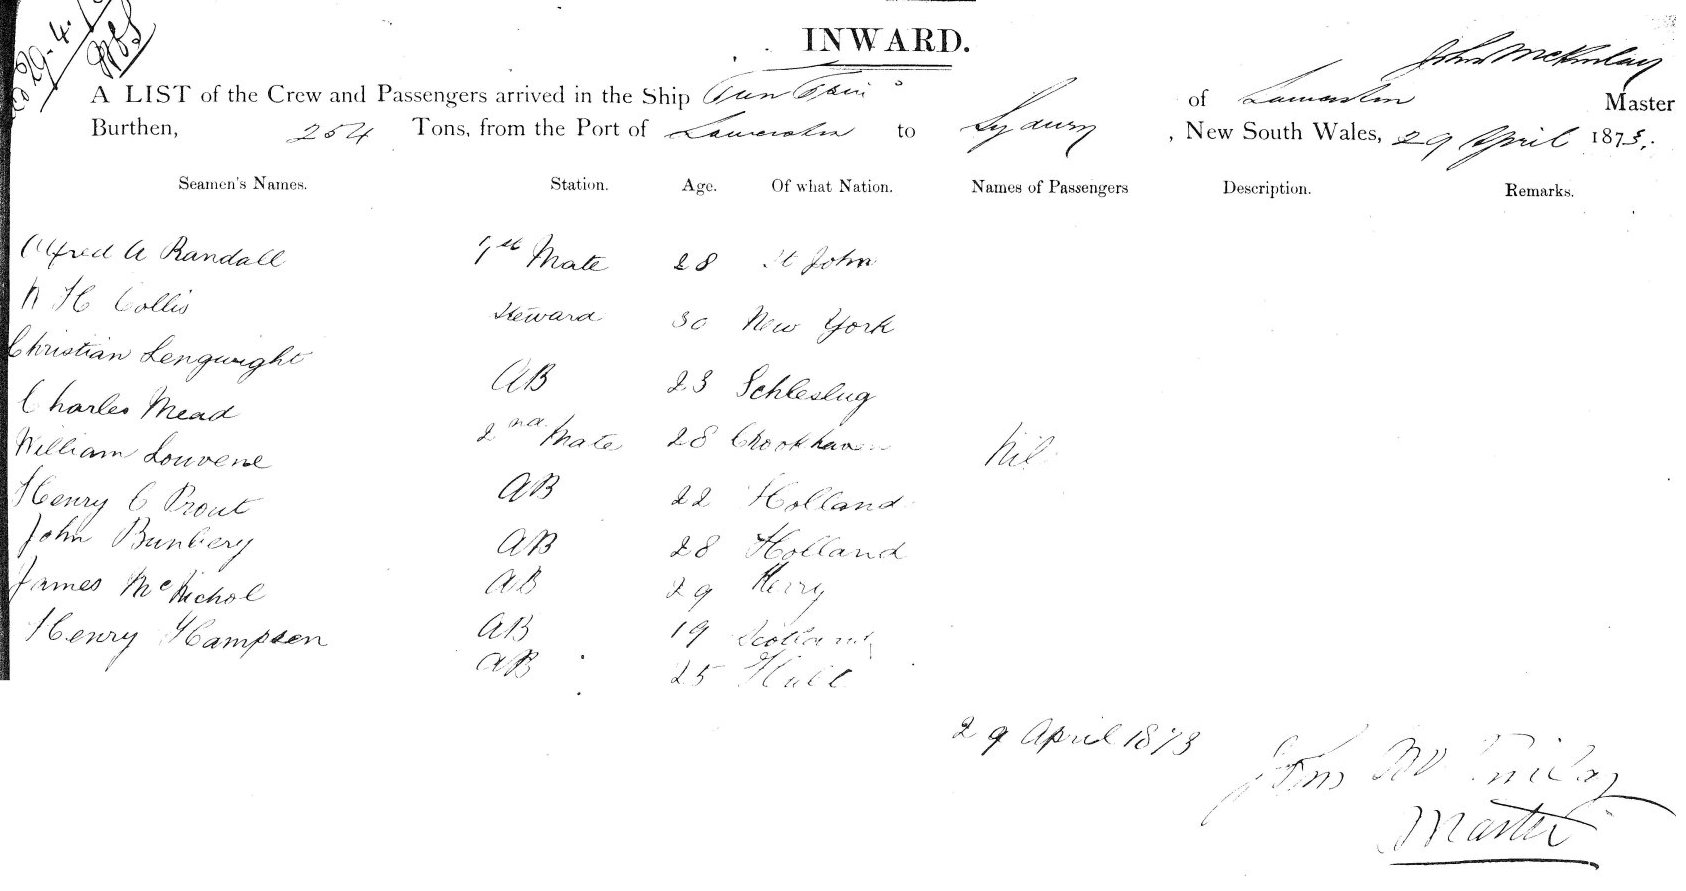 29-4-
INWARD.
John McKinlay
A LIST of the Crew and Passengers arrived in the Ship of Launceston Master
Burthen, 254 Tons, from the Port of Launceston to Sydney, New South Wales, 29 April 1873.
Seamen's Names. Station. Age. Of what Nation. Names of Passengers Description. Remarks.
Alfred A Randall 1st Mate 28 St John
H Collis Steward 30 New York
Christian Lengwight AB 23 Schleslug
Charles Mead 2nd Mate 28 Crookhaven Nil
William Louvene AB 22 Holland
Henry C Prout AB 28 Holland
John Bunbery AB 29 Kerry
James McNichol AB 19 Scotland
Henry Hampsen AB 25 Hull
29 April 1873
Master